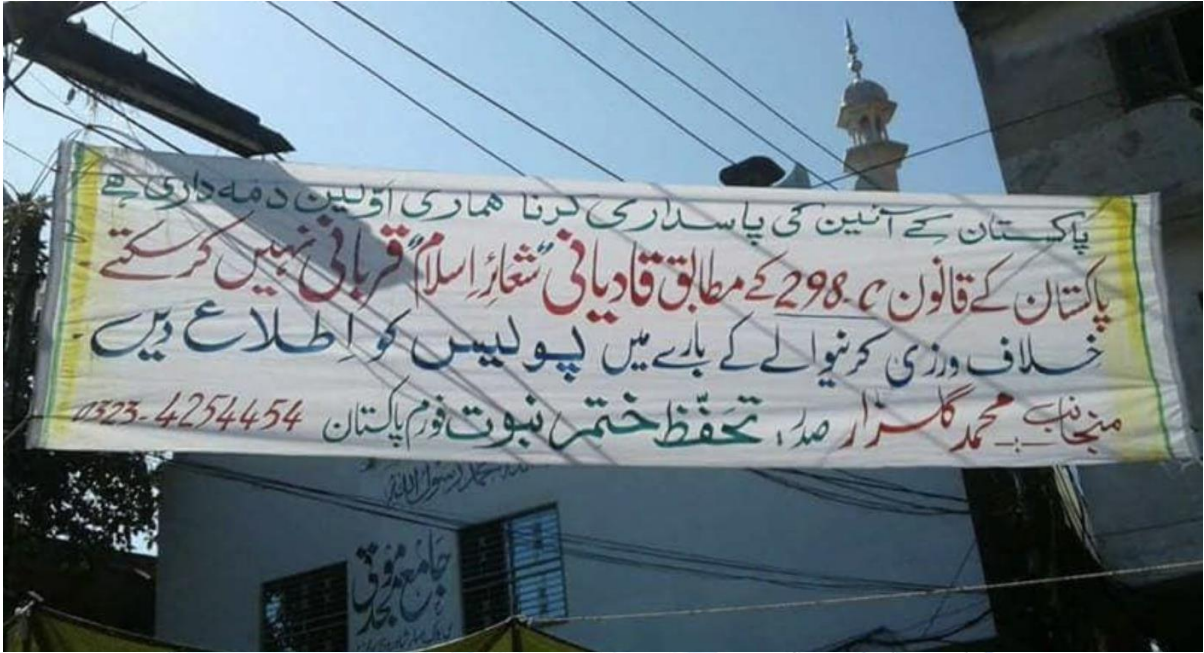 پاکستان کے آئین کی پاسداری کرنا ھماری اوّلین ذمہ داری ھے
پاکستان کے قانون 298.C کے مطابق قادیانی "شعائرِ اِسلام" قربانی نہیں کر سکتے
خلاف ورزی کرنیوالے کے بارے میں پولیس کو اِطلاع دیں۔
منجانب:۔ محمد گلزار صدر: تحفّظ ختم نبوت فورم پاکستان 0323-4254454
محمد رسول اللہ
جامع مسجد